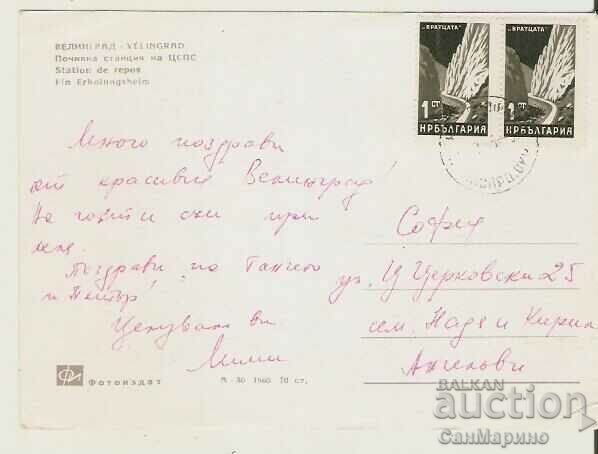 ВЕЛИНГРАД - VELINGRAD
Почивна станция на ЦСПС
Station de repos
Ein Erholungsheim
„ВРАТЦАТА"
1 СТ
НРБЪЛГАРИЯ
„ВРАТЦАТА"
1 СТ
НРБЪЛГАРИЯ
Много поздрави
от красивия Велинград!
На гости съм при
леля.
Поздрави на
и Петър!
Целувам ви
Мими
София
ул. Ц Церковски 25
сем. Надя и Кирил
Ангелови
Фотоиздат
1960 10 ст.
BALKAN
auction
СанМарино